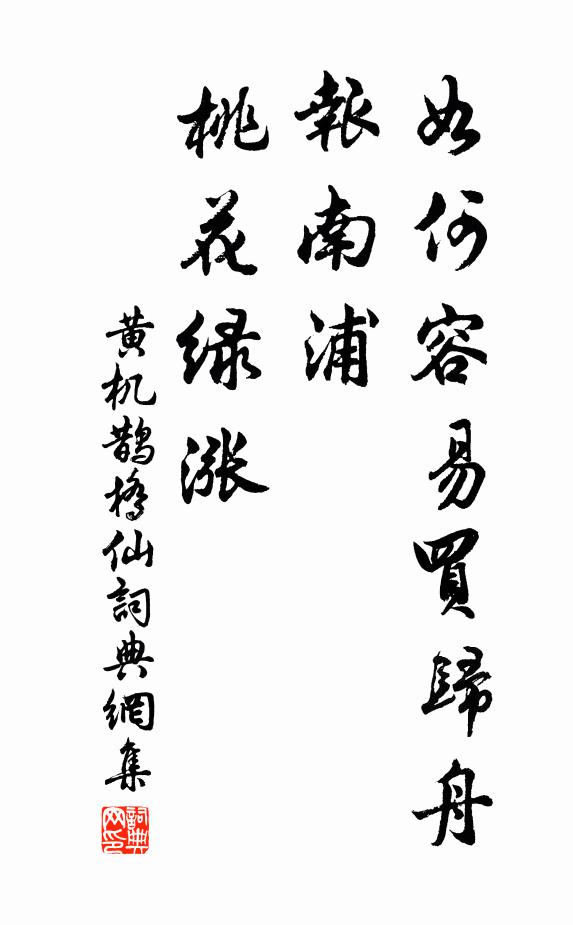 如何容易買歸舟
報南浦
桃花緑漲
黄机鹊橋仙詞典網集
詞典网印